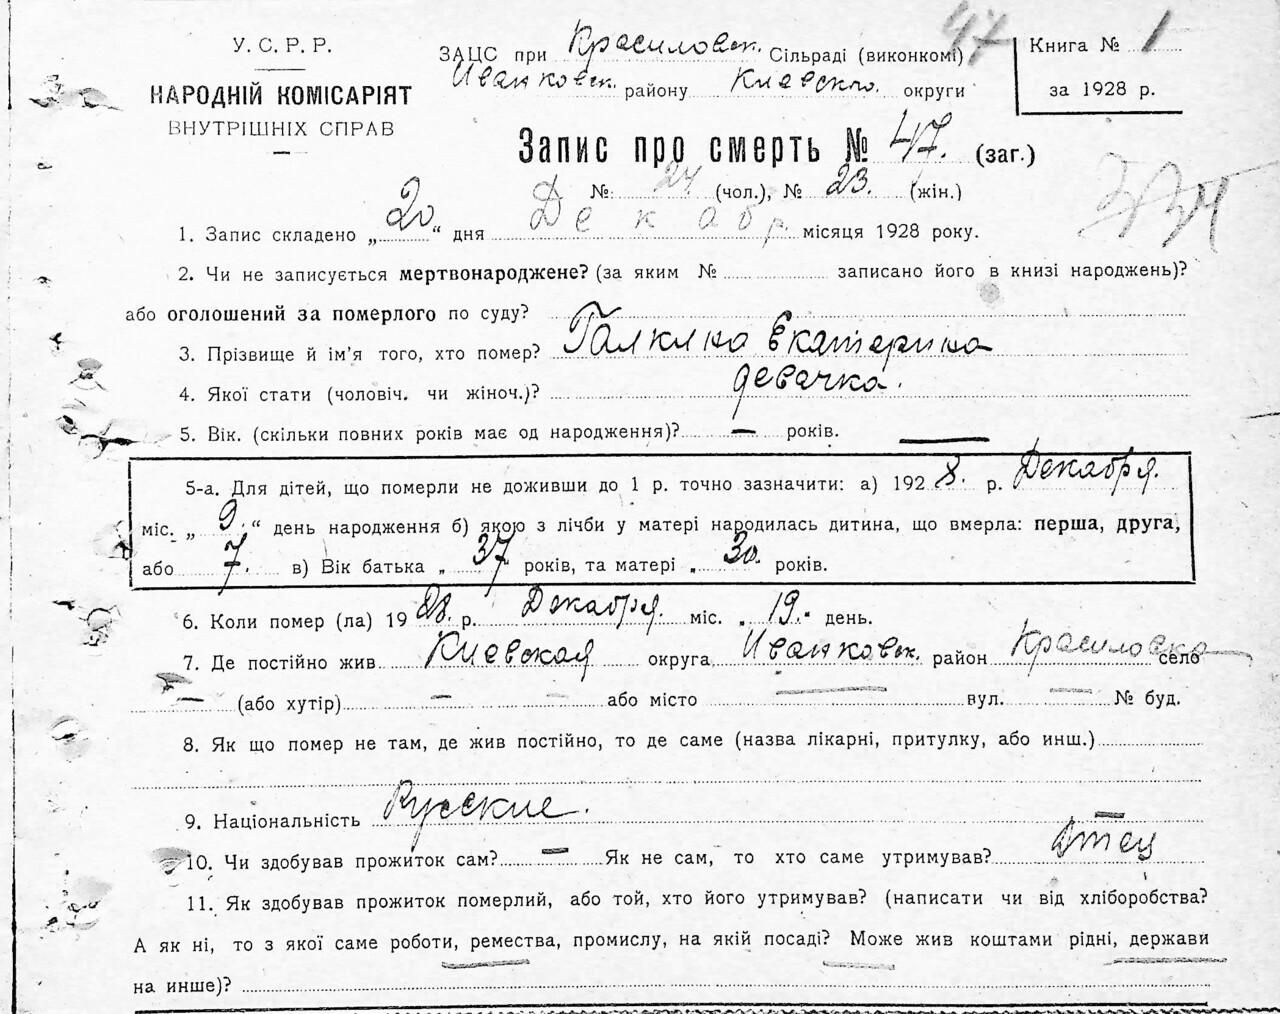 У. С. Р. Р.
НАРОДНІЙ КОМІСАРІЯТ
ВНУТРІШНІХ СПРАВ
47
ЗАЦС при Красиловск. Сільраді (виконкомі)
Иванковск. району Киевско. округи
Книга № 1
за 1928 р.
Запис про смерть № 47. (заг.)
№ 24 (чол.), № 23. (жін.)
1. Запис складено „20“ дня Декабр. місяця 1928 року.
2. Чи не записується мертвонароджене? (за яким № записано його в книзі народжень)?
або оголошений за померлого по суду?
3. Прізвище й ім’я того, хто помер? Галкина Екатерина
4. Якої стати (чоловіч. чи жіноч.)? девачка.
5. Вік. (скільки повних років має од народження)? — років. —
5-а. Для дітей, що померли не доживши до 1 р. точно зазначити: а) 1928. р. Декабря.
міс. „9.“ день народження б) якою з лічби у матері народилась дитина, що вмерла: перша, друга,
або 7. в) Вік батька „37“ років, та матері „30. років.
6. Коли помер (ла) 1928. р. Декабря. міс. „19.“ день.
7. Де постійно жив Киевская округа Иванковск. район Красиловка село
— (або хутір) — — або місто — вул. — № буд.
8. Як що помер не там, де жив постійно, то де саме (назва лікарні, притулку, або инш.)
9. Національність Русские.
10. Чи здобував прожиток сам? — Як не сам, то хто саме утримував? Отец
11. Як здобував прожиток померлий, або той, хто його утримував? (написати чи від хліборобства?
А як ні, то з якої саме роботи, ремества, промислу, на якій посаді? Може жив коштами рідні, держави
на инше)?